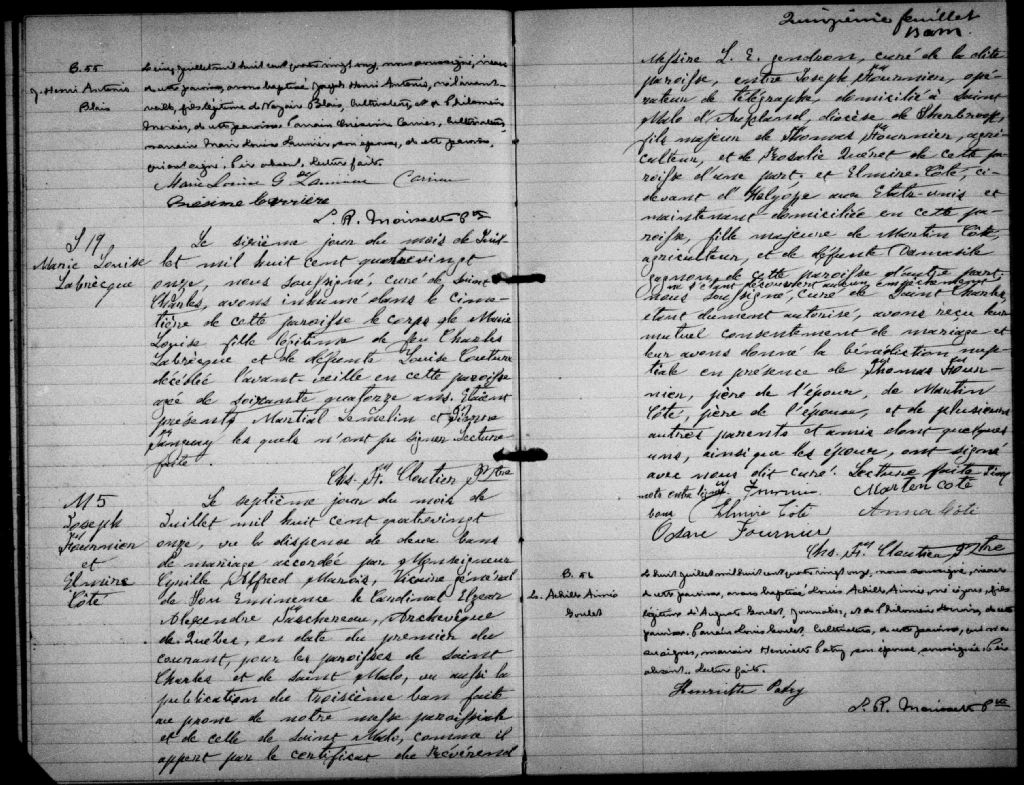 B. 55
J. Henri Antonio
Blais
Le cinq juillet mil huit cent quatre vingt onze, nous soussigné, vicaire
de cette paroisse, avons baptisé Joseph Henri Antonio, né l'avant-
veille, fils légitime de Nazaire Blais, Cultivateur, et de Philomène
de cette paroisse. Parrain Onésime Carrier, Cultivateur,
marraine Marie Louise son épouse, de cette paroisse,
qui ont signé. Père absent. Lecture faite.
Marie Louise G
Onésime Carrière
S 19
Marie Louise
Labrecque
Le sixième jour du mois de Juil-
let mil huit cent quatrevingt
onze, nous soussigné, curé de Saint
Charles, avons inhumé dans le cime-
tière de cette paroisse le corps de Marie
Louise fille légitime de feu Charles
Labrecque et de défunte Louise Couture
décédée l'avant-veille en cette paroisse
agé de soixante quatorze ans. Etaient
présents Martial Lemelin et Pierre
Tanguay les quels n'ont pu signer Lecture
faite.
Chs. Frs Cloutier Ptre
M 5
Joseph
Fournier
et
Elmire
Côté
Le septième jour du mois de
Juillet mil huit cent quatrevingt
onze, vu la dispense de deux bans
de mariage accordée par Monseigneur
Cyrille Alfred Marois, Vicaire général
de Son Eminence le Cardinal Elzear
Alexandre Taschereau, Archevêque
de Québec, en date du premier du
courant, pour les paroisses de Saint
Charles et de Saint Malo, vu aussi la
publication du troisième ban faite
au prone de notre messe paroissiale
et de celle de Saint Malo, comme il
appert par le certificat du Révérend
Quinzième feuillet
Messire L. E. Gendron, curé de la dite
paroisse, entre Joseph Fournier, opé-
rateur de télégraphe, domicilié à Saint
Malo d'Aukland, diocèse de Sherbrook,
fils majeur de Thomas Fournier, agri-
culteur, et de Rosalie Quéret de cette pa-
roisse d'une part. et Elmire Côté, ci-
devant d'Holyoke aux Etats-unis et
maintenant domiciliée en cette pa-
roisse, fille majeure de Martin Côté,
agriculteur, et de défunte Damasile
Gagnon de cette paroisse d'autre part,
ne s'étant découvert aucun empêchement
nous soussigné, curé de Saint Charles,
étant dument autorisé, avons reçu leur
mutuel consentement de mariage et
leur avons donné la bénédiction nup-
tiale en présence de Thomas Four-
nier, père de l'époux, de Martin
Côté, père de l'épouse, et de plusieurs
autres parents et amis dont quelques
uns, ainsi que les époux, ont signé
avec nous dit curé. Lecture faite.
Fournier Marten cote
Elmire Coté Anna Coté
Fournier
Chs. Frs Cloutier Ptre
Achille Aimé
Goulet
Le huit juillet mil huit cent quatre vingt onze, nous soussigné, vicaire
de cette paroisse, avons baptisé Louis Achille Aimé, né ce jour, fils
légitime d'Auguste Goulet, Journalier, et de Philomène de cette
paroisse. Parrain Louis Goulet, Cultivateur, de cette paroisse, qui n'a
su signer, marraine Henriette Patry son épouse, soussignée. Père
absent. Lecture faite.
Henriette Patry